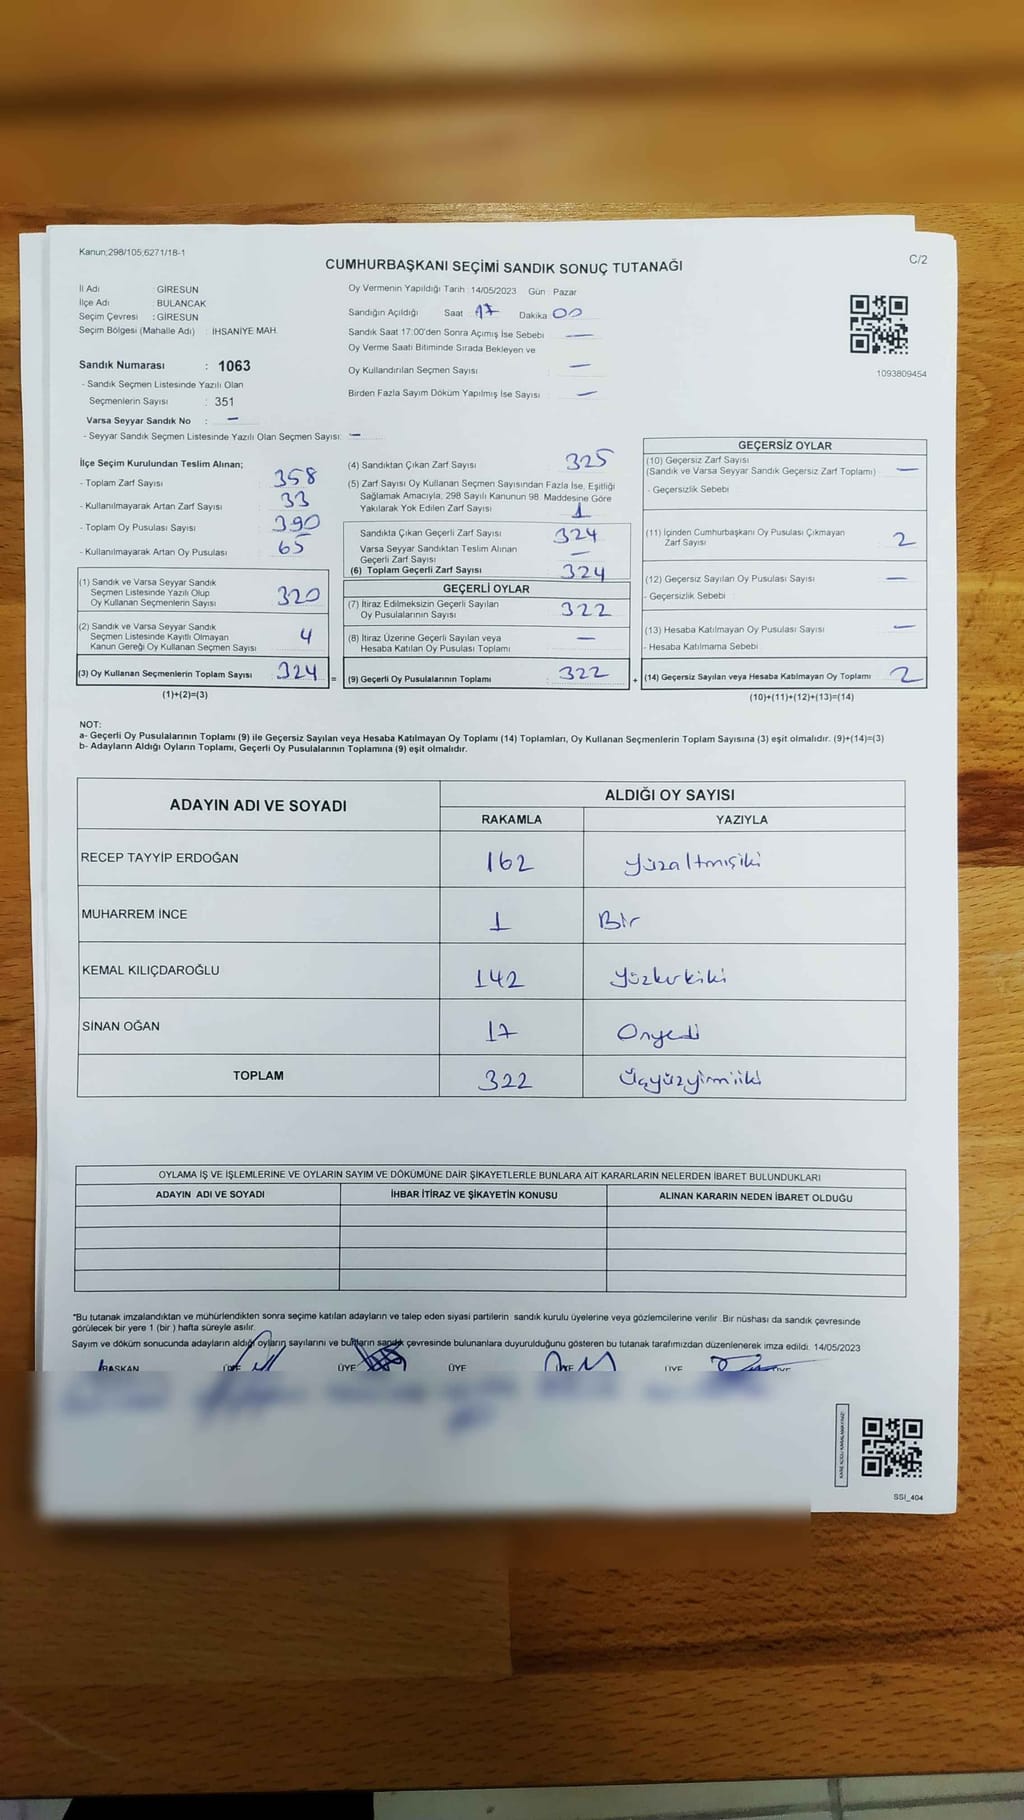 Kanun;298/105;6271/18-1
CUMHURBAŞKANI SEÇİMİ SANDIK SONUÇ TUTANAĞI
C/2
İl Adı GİRESUN
İlçe Adı BULANCAK
Seçim Çevresi : GİRESUN
Seçim Bölgesi (Mahalle Adı) : İHSANİYE MAH.
Sandık Numarası : 1063
- Sandık Seçmen Listesinde Yazılı Olan
Seçmenlerin Sayısı : 351
Varsa Seyyar Sandık No : —
- Seyyar Sandık Seçmen Listesinde Yazılı Olan Seçmen Sayısı: —
Oy Vermenin Yapıldığı Tarih : 14/05/2023 Gün : Pazar
Sandığın Açıldığı Saat 17 Dakika 00
Sandık Saat 17:00'den Sonra Açımış İse Sebebi —
Oy Verme Saati Bitiminde Sırada Bekleyen ve
Oy Kullandırılan Seçmen Sayısı : —
Birden Fazla Sayım Döküm Yapılmış İse Sayısı : —
1093809454
İlçe Seçim Kurulundan Teslim Alınan;
- Toplam Zarf Sayısı : 358
- Kullanılmayarak Artan Zarf Sayısı : 33
- Toplam Oy Pusulası Sayısı : 390
- Kullanılmayarak Artan Oy Pusulası : 65
(1) Sandık ve Varsa Seyyar Sandık
Seçmen Listesinde Yazılı Olup
Oy Kullanan Seçmenlerin Sayısı : 320
(2) Sandık ve Varsa Seyyar Sandık
Seçmen Listesinde Kayıtlı Olmayan
Kanun Gereği Oy Kullanan Seçmen Sayısı 4
(3) Oy Kullanan Seçmenlerin Toplam Sayısı : 324 =
(1)+(2)=(3)
(4) Sandıktan Çıkan Zarf Sayısı : 325
(5) Zarf Sayısı Oy Kullanan Seçmen Sayısından Fazla İse, Eşitliği
Sağlamak Amacıyla, 298 Sayılı Kanunun 98. Maddesine Göre
Yakılarak Yok Edilen Zarf Sayısı : 1
Sandıkta Çıkan Geçerli Zarf Sayısı : 324
Varsa Seyyar Sandıktan Teslim Alınan
Geçerli Zarf Sayısı : —
(6) Toplam Geçerli Zarf Sayısı : 324
GEÇERLİ OYLAR
(7) İtiraz Edilmeksizin Geçerli Sayılan
Oy Pusulalarının Sayısı : 322
(8) İtiraz Üzerine Geçerli Sayılan veya
Hesaba Katılan Oy Pusulası Toplamı : —
(9) Geçerli Oy Pusulalarının Toplamı : 322 +
GEÇERSİZ OYLAR
(10) Geçersiz Zarf Sayısı
(Sandık ve Varsa Seyyar Sandık Geçersiz Zarf Toplamı) : —
- Geçersizlik Sebebi :
(11) İçinden Cumhurbaşkanı Oy Pusulası Çıkmayan
Zarf Sayısı : 2
(12) Geçersiz Sayılan Oy Pusulası Sayısı : —
- Geçersizlik Sebebi :
(13) Hesaba Katılmayan Oy Pusulası Sayısı : —
- Hesaba Katılmama Sebebi :
(14) Geçersiz Sayılan veya Hesaba Katılmayan Oy Toplamı : 2
(10)+(11)+(12)+(13)=(14)
NOT:
a- Geçerli Oy Pusulalarının Toplamı (9) ile Geçersiz Sayılan veya Hesaba Katılmayan Oy Toplamı (14) Toplamları, Oy Kullanan Seçmenlerin Toplam Sayısına (3) eşit olmalıdır. (9)+(14)=(3)
b- Adayların Aldığı Oyların Toplamı, Geçerli Oy Pusulalarının Toplamına (9) eşit olmalıdır.
ADAYIN ADI VE SOYADI ALDIĞI OY SAYISI
RAKAMLA YAZIYLA
RECEP TAYYİP ERDOĞAN 162 Yüzaltmışiki
MUHARREM İNCE 1 Bir
KEMAL KILIÇDAROĞLU 142 Yüzkırkiki
SİNAN OĞAN 17 Onyedi
TOPLAM 322 Üçyüzyirmiiki
OYLAMA İŞ VE İŞLEMLERİNE VE OYLARIN SAYIM VE DÖKÜMÜNE DAİR ŞİKAYETLERLE BUNLARA AİT KARARLARIN NELERDEN İBARET BULUNDUKLARI
ADAYIN ADI VE SOYADI İHBAR İTİRAZ VE ŞİKAYETİN KONUSU ALINAN KARARIN NEDEN İBARET OLDUĞU
*Bu tutanak imzalandıktan ve mühürlendikten sonra seçime katılan adayların ve talep eden siyasi partilerin sandık kurulu üyelerine veya gözlemcilerine verilir. Bir nüshası da sandık çevresinde
görülecek bir yere 1 (bir ) hafta süreyle asılır.
Sayım ve döküm sonucunda adayların aldığı oyların sayılarını ve bunların sandık çevresinde bulunanlara duyurulduğunu gösteren bu tutanak tarafımızdan düzenlenerek imza edildi. 14/05/2023
BAŞKAN ÜYE ÜYE ÜYE ÜYE ÜYE ÜYE
SSI_404